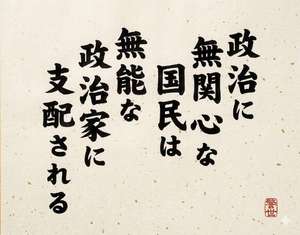 政治に
無関心な
国民は
無能な
政治家に
支配される